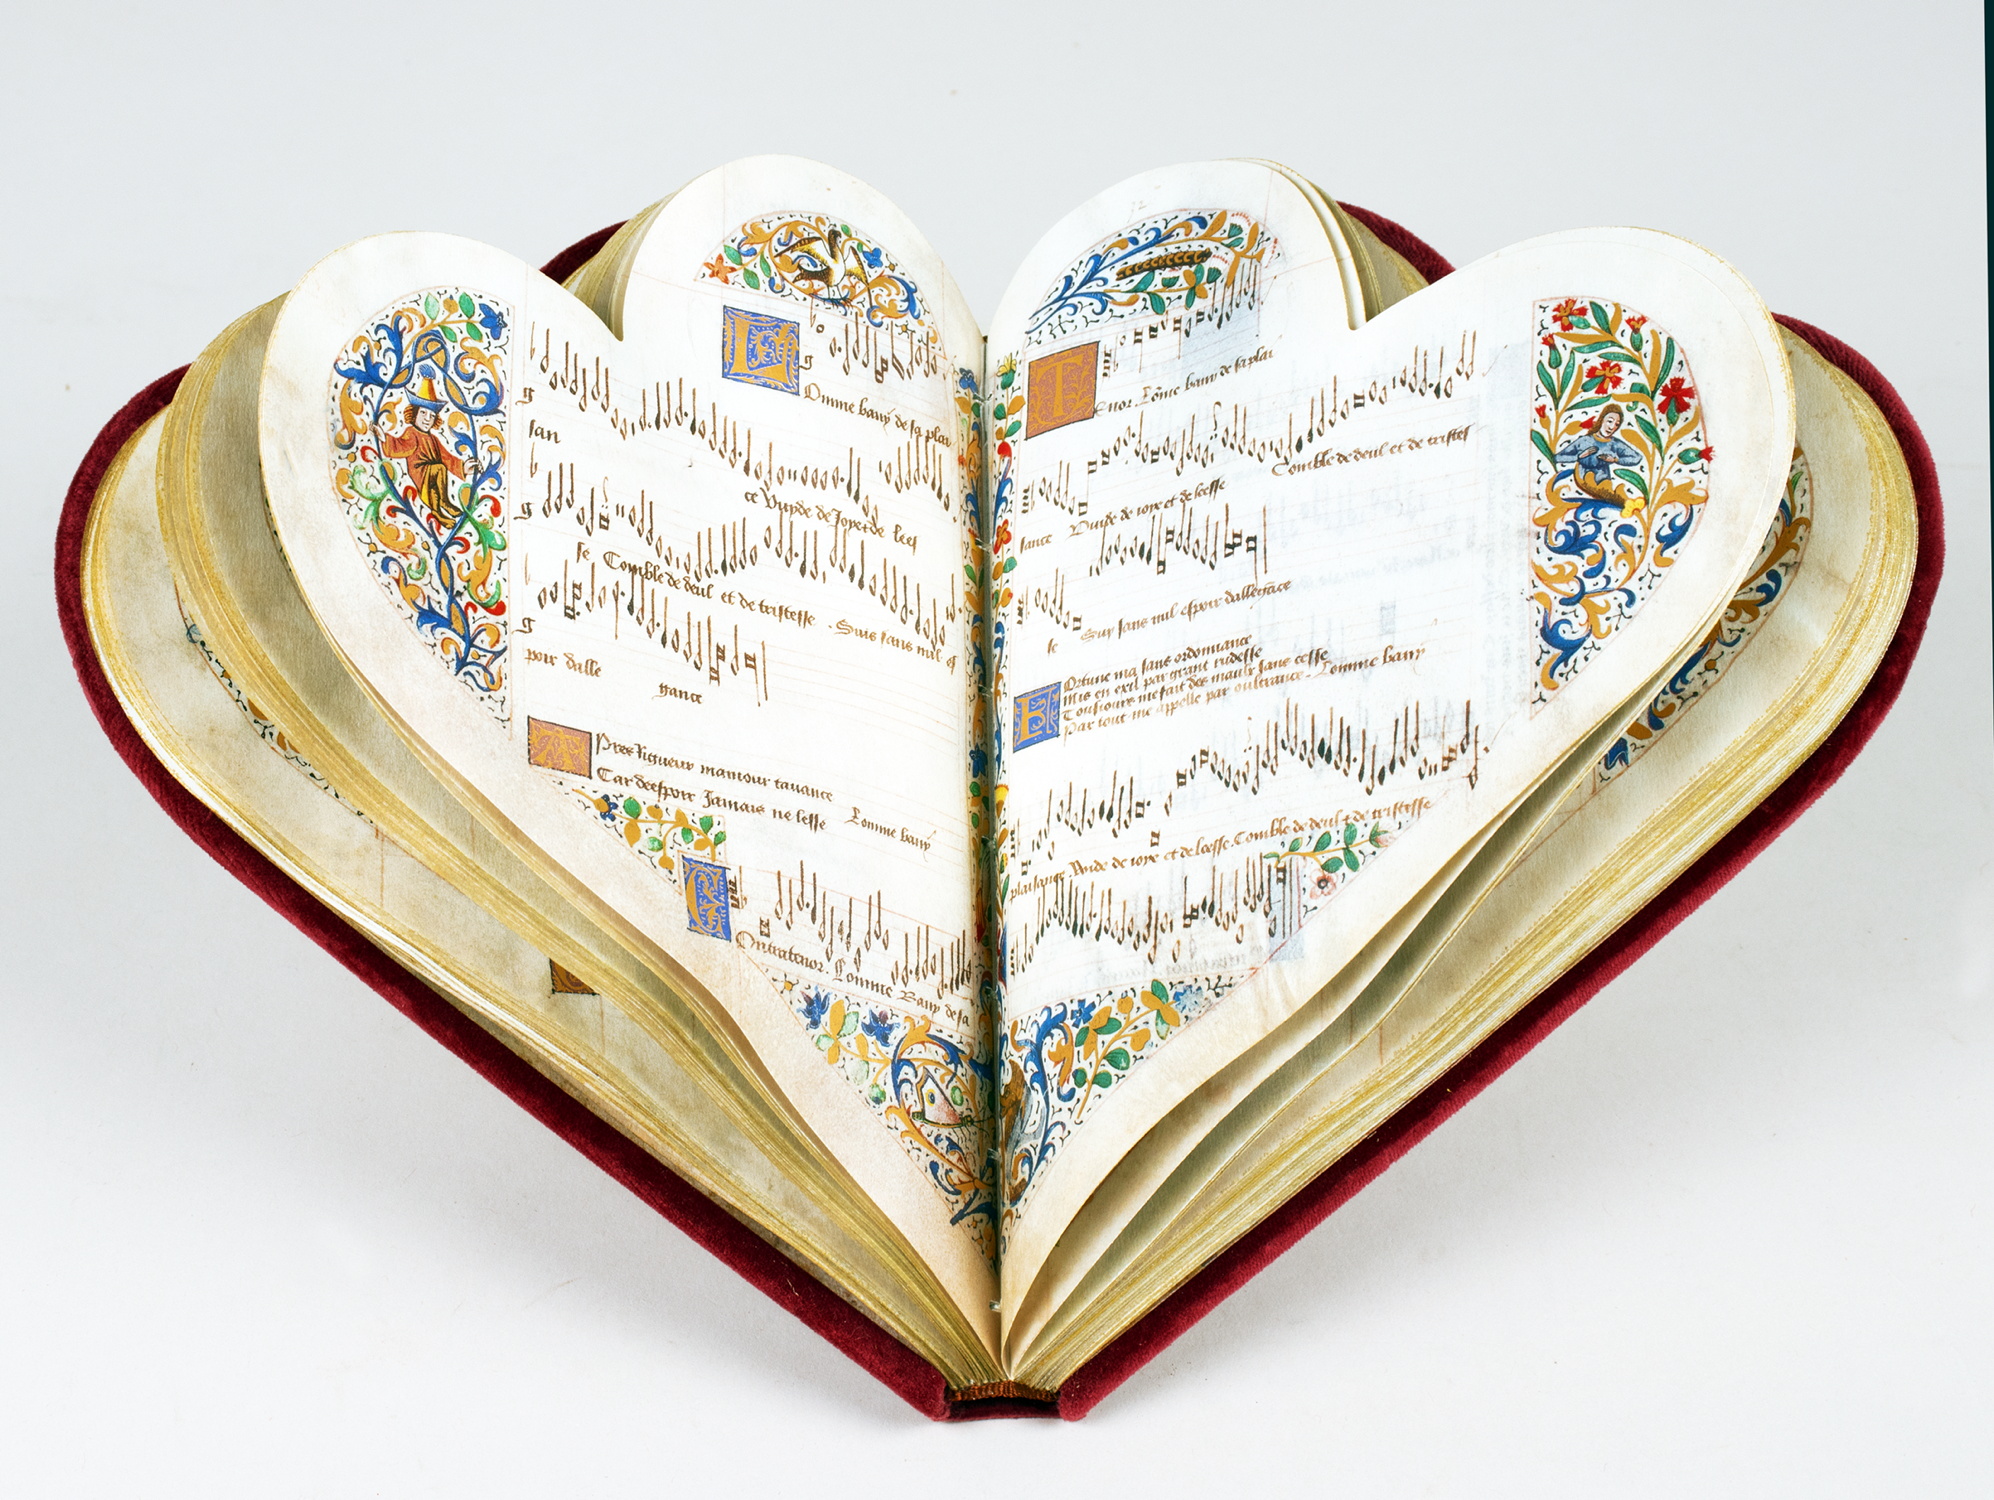 Comme bany de sa plai
san
ce Vuyde de Joye et de lees
se Comble de deul et de tristesse . Suis sans nul es
poir dalle
gance
Apres rigueur mamour tavance
Car deespoir Jamais ne lesse Comme bany
Contratenor . Comme Bany de sa
Tenor . Cõme bany de sa plai
Comble de deul et de tristes
sance Vuide de ioye et de leesse
se Suy sans nul espoir dallegãce
Fortune ma sans ordonnance
mis en exil par grant rudesse
Tousiours me fait des maulx sans cesse
Par tout me appelle par oultrance . Comme bany
plaisance . Vuide de ioye et de leesse . Comble de deul & de tristesse